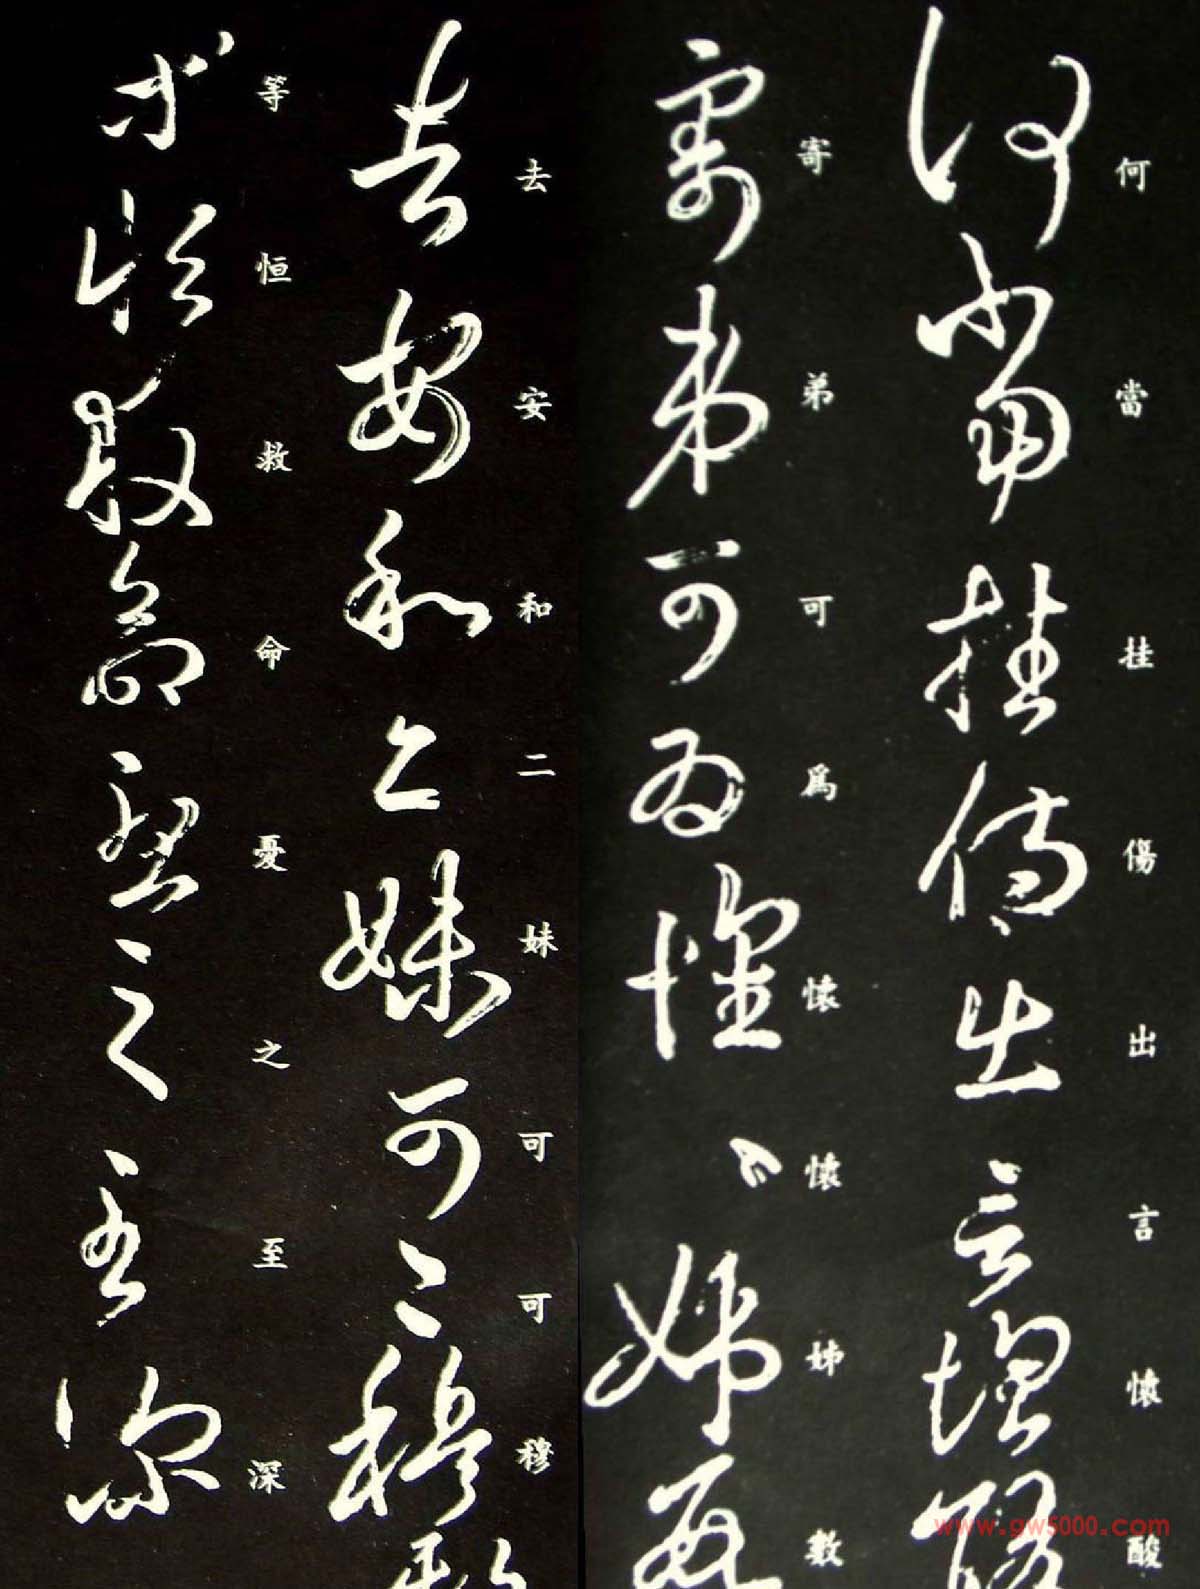 何當挂傷出言懷酸
寄弟可爲懷懷姊數
去安和二妹可可穆
等恒救命憂之至深
www.gw5000.com